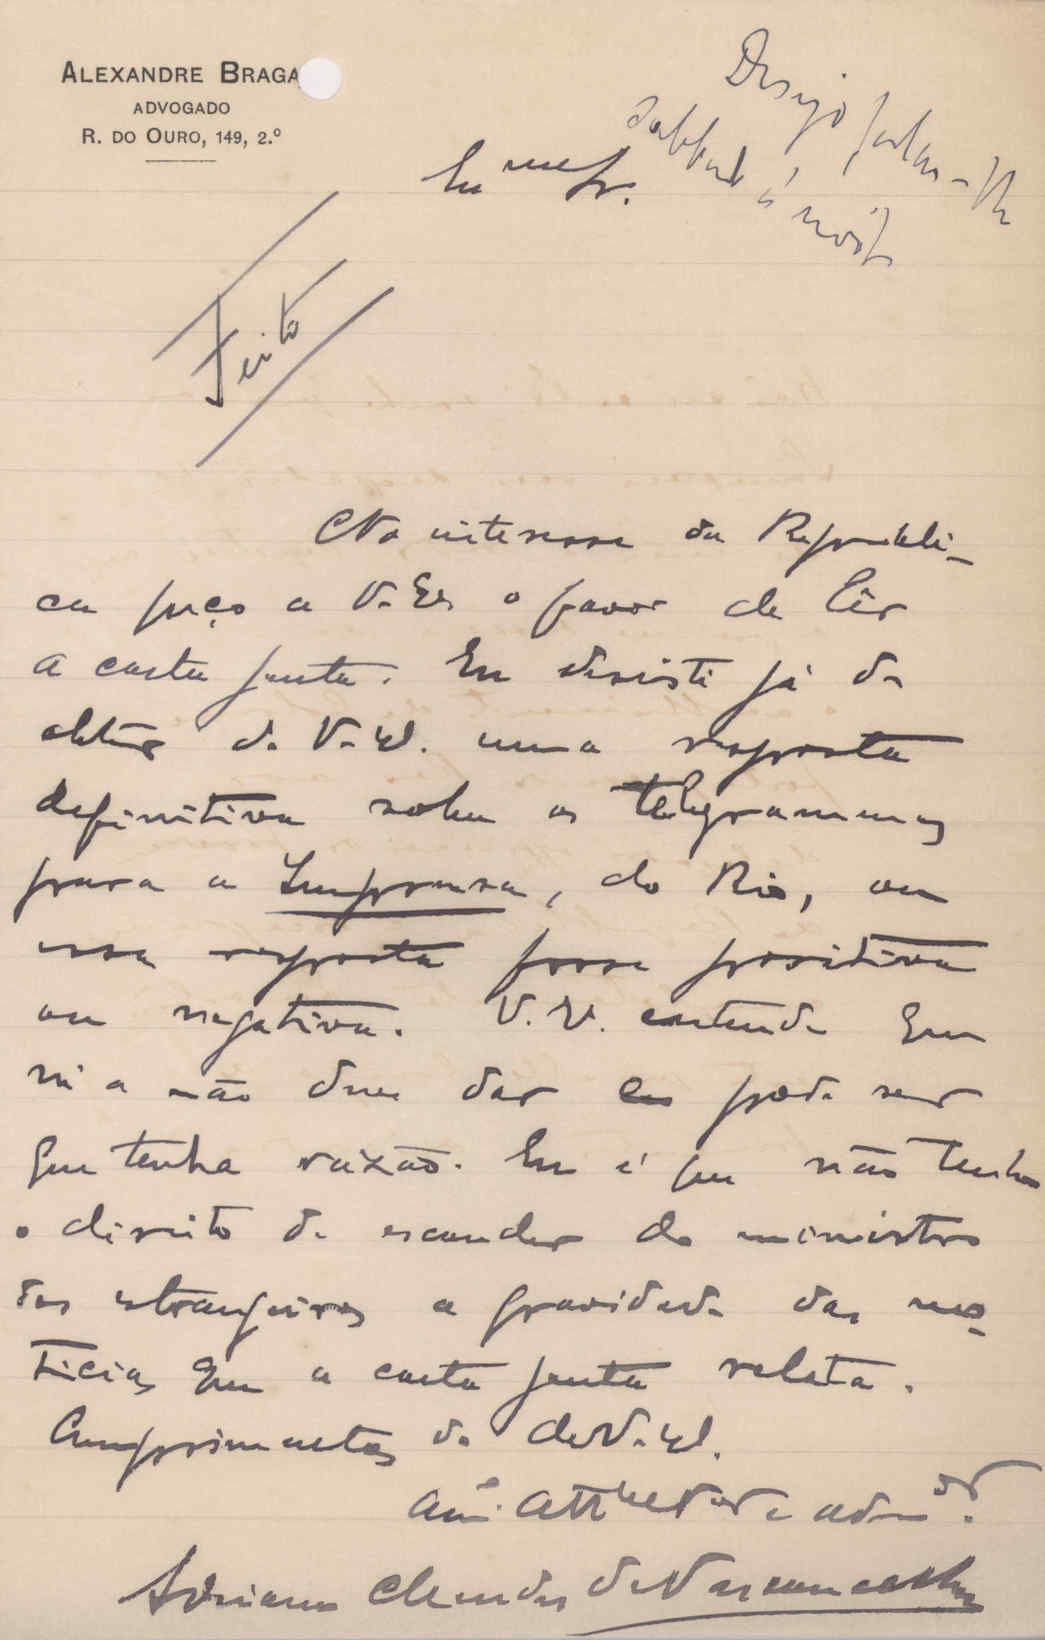 ALEXANDRE BRAGA
ADVOGADO
R. DO OURO, 149, 2.º
Desejo fallar-lhe
sabbado á noite
Exmo Sr.
Feito
No interesse da Republi-
ca peço a V. Ex. o favor de lêr
a carta junta. Eu desisti já de
obter de V. Ex. uma resposta
definitiva sobre os telegrammas
para a Imprensa, do Rio, ou
essa resposta fosse positiva
ou negativa. V. Ex. entende que
m'a não deve dar e pode ser
que tenha razão. Eu é que não tenho
o direito de esconder do ministro
dos estrangeiros a gravidade das no-
ticias que a carta junta relata.
Cumprimentos do de V. Ex.
am.º att.º ven.dor e adm.dor
Adriano Mendes de Vasconcellos